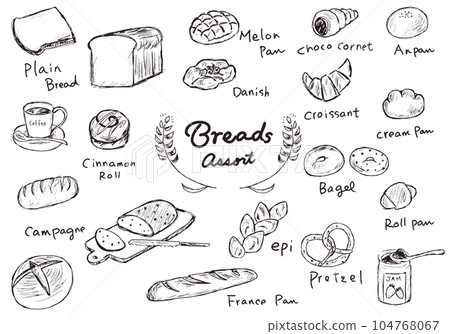 Plain
Bread
Melon
Pan
Choco Cornet
Anpan
Danish
Croissant
cream Pan
Coffee
Cinnamon
Roll
Breads
assort
Bagel
Roll pan
Campagne
epi
Pretzel
JAM
France Pan
PIXTA
104768067